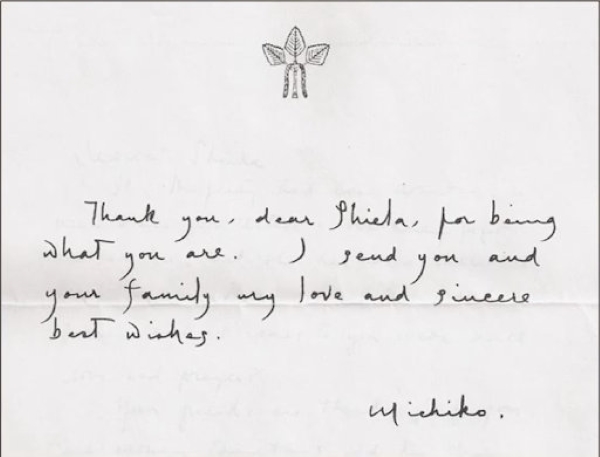 Thank you, dear Shiela, for being
what you are. I send you and
your family my love and sincere
best wishes.
Michiko.